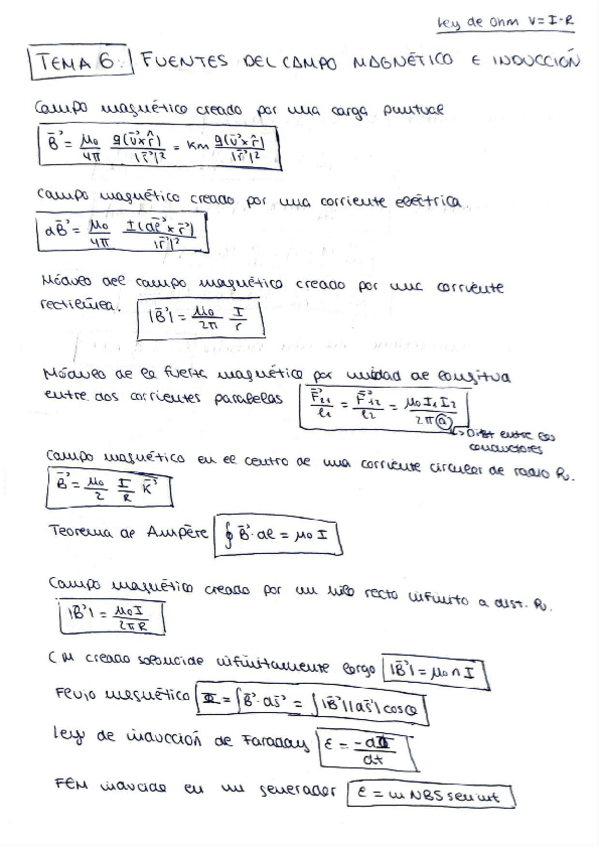 Ley de Ohm V = I·R
TEMA 6: FUENTES DEL CAMPO MAGNÉTICO E INDUCCIÓN
Campo magnético creado por una carga puntual
B⃗ = μ₀/4π q(v⃗ × r̂)/|r⃗|² = Km q(v⃗ × r̂)/|r⃗|²
Campo magnético creado por una corriente eléctrica.
dB⃗ = μ₀/4π I(dl⃗ × r⃗)/|r⃗|²
Módulo del campo magnético creado por una corriente
rectilínea. |B⃗| = μ₀/2π I/r
Módulo de la fuerza magnético por unidad de longitud
entre dos corrientes paralelas F⃗₂₁/l₁ = F⃗₁₂/l₂ = μ₀ I₁ I₂/2π a
↳ Dist entre los
conductores
Campo magnético en el centro de una corriente circular de radio R.
B⃗ = μ₀/2 I/R K⃗
Teorema de Ampère ∮ B⃗ · dl = μ₀ I
Campo magnético creado por un hilo recto infinito a dist. R.
|B⃗| = μ₀ I/2πR
CM creado solenoide infinitamente largo |B⃗| = μ₀ n I
Flujo magnético Φ = ∫ B⃗ · ds⃗ = ∫ |B⃗| |ds⃗| cos θ
Ley de inducción de Faraday ε = -dΦ/dt
FEM inducida en un generador ε = w NBS sen wt